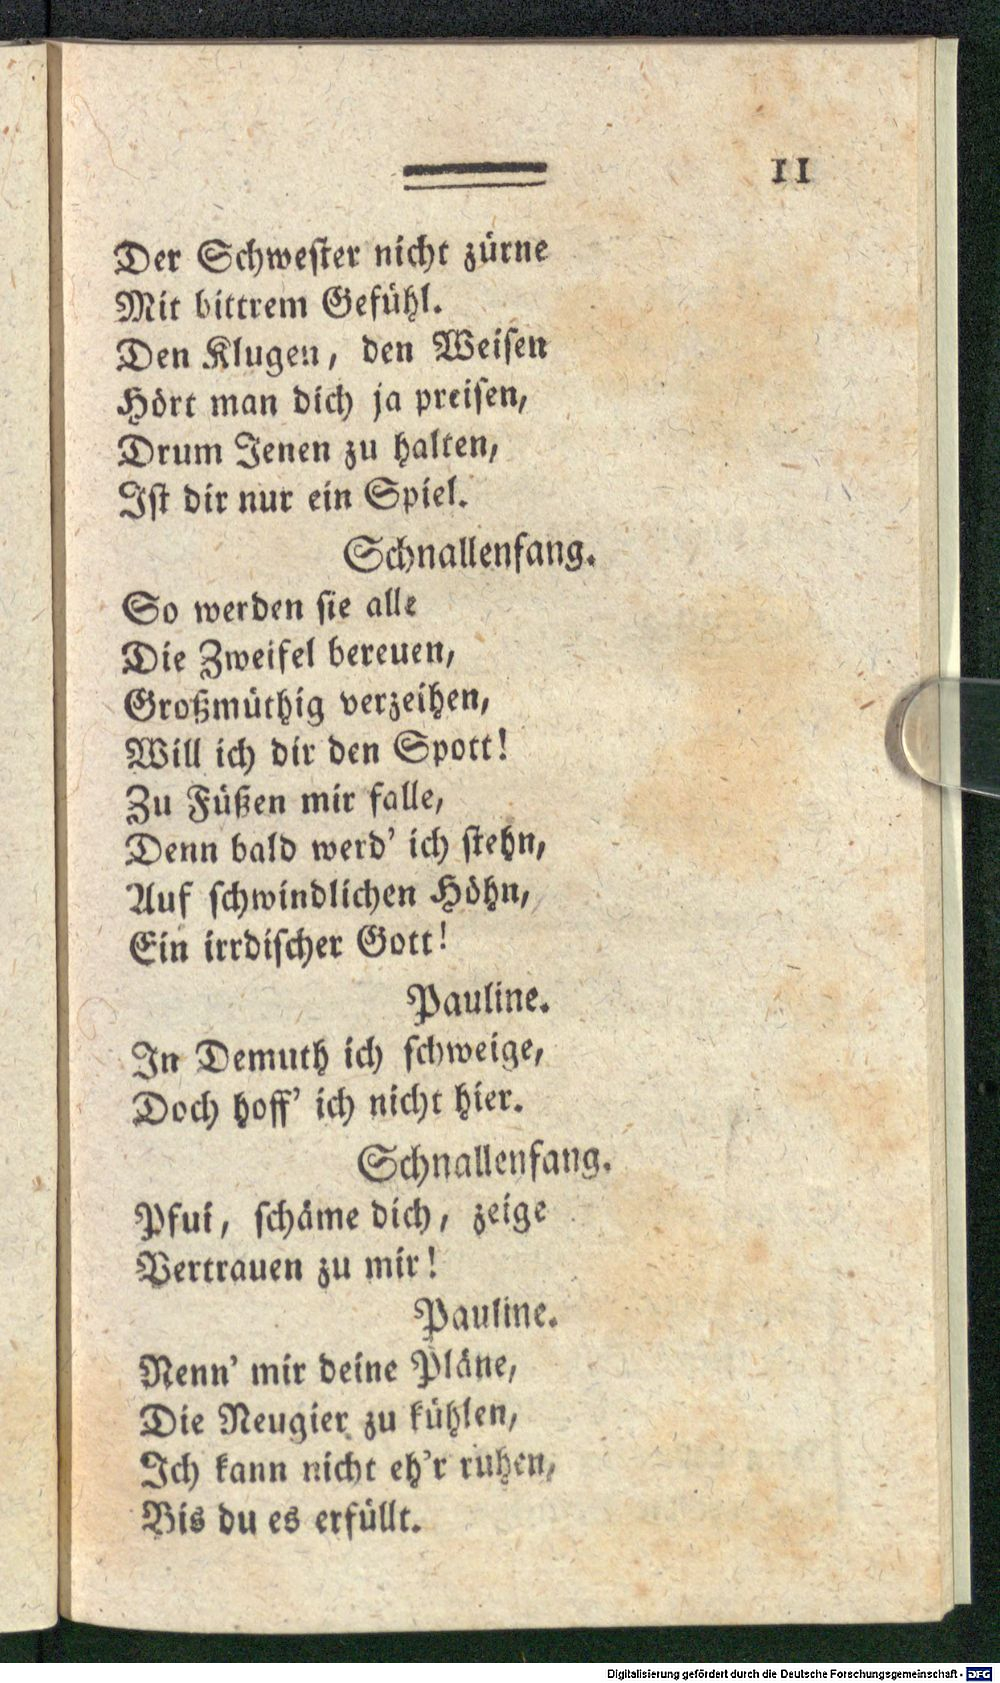 11
Der Schwester nicht zürne
Mit bittrem Gefühl.
Den Klugen, den Weisen
Hört man dich ja preisen,
Drum Jenen zu halten,
Ist dir nur ein Spiel.
Schnallenfang.
So werden sie alle
Die Zweifel bereuen,
Großmüthig verzeihen,
Will ich dir den Spott!
Zu Füßen mir falle,
Denn bald werd' ich stehn,
Auf schwindlichen Höhn,
Ein irrdischer Gott!
Pauline.
In Demuth ich schweige,
Doch hoff' ich nicht hier.
Schnallenfang.
Pfui, schäme dich, zeige
Vertrauen zu mir!
Pauline.
Nenn' mir deine Pläne,
Die Neugier zu kühlen,
Ich kann nicht eh'r ruhen,
Bis du es erfüllt.
Digitalisierung gefördert durch die Deutsche Forschungsgemeinschaft - DFG